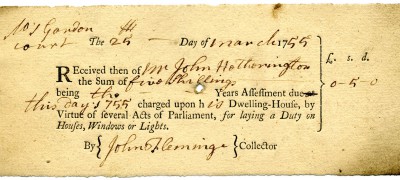 Mrs Gordon
court The 25th Day of march 1755
£. s. d.
Received then of Mr John Hetherington
the Sum of five Shillings
0-5-0
being the Years Assessment due
this day 1755 charged upon his Dwelling-House, by
Virtue of several Acts of Parliament, for laying a Duty on
Houses, Windows or Lights.
By John Fleminge Collector